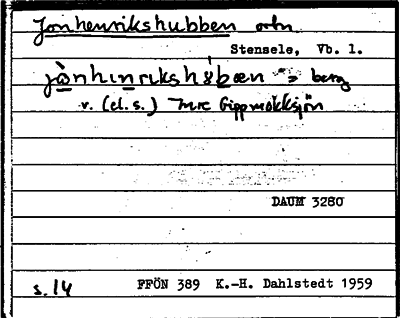 Jonhenrikshubben ortn
Stensele, Vb. l.
jònhinrikshùbæn berg
v. (el. s.) Inre Gippmokksjön
DAUM 3280
s. 14 FFÖN 389 K.-H. Dahlstedt 1959